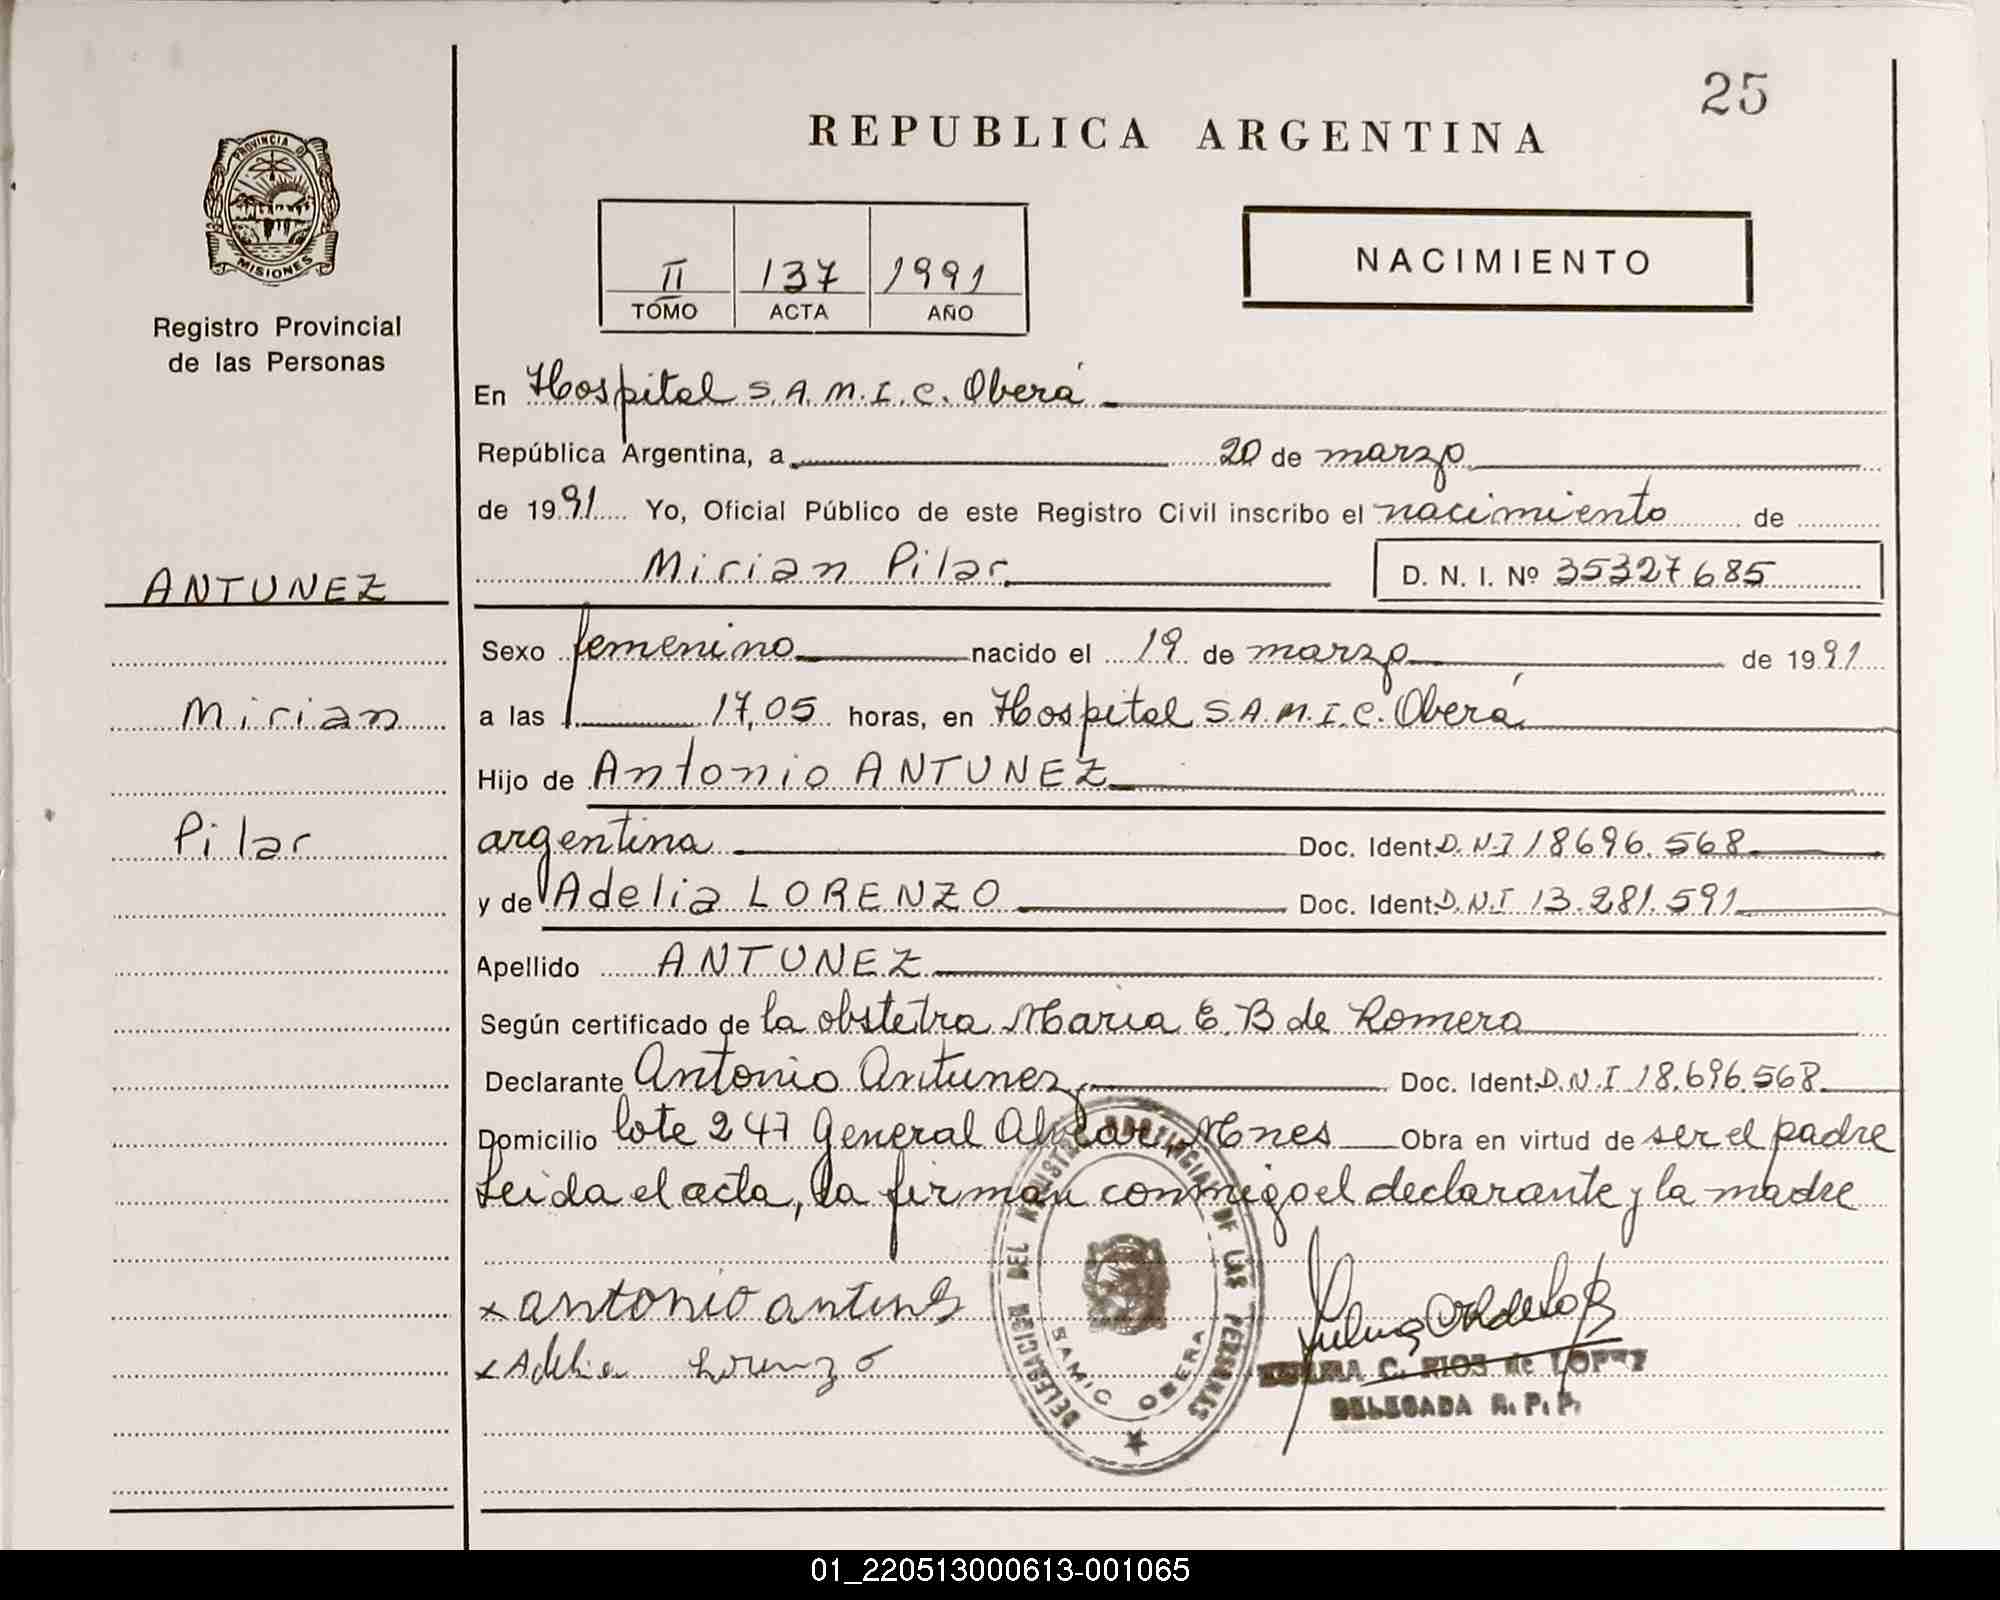 25
REPUBLICA ARGENTINA
PROVINCIA D
MISIONES
Registro Provincial
de las Personas
II 137 1991
TOMO ACTA AÑO
NACIMIENTO
En Hospital S.A.M.I.C. Oberá
República Argentina, a 20 de marzo
de 1991 Yo, Oficial Público de este Registro Civil inscribo el nacimiento de
Mirian Pilar D. N. I. Nº 35327685
ANTUNEZ
Mirian
Pilar
Sexo femenino nacido el 19 de marzo de 1991
a las 17,05 horas, en Hospital S.A.M.I.C. Oberá
Hijo de Antonio ANTUNEZ
argentina Doc. Ident. D.N.I 18696.568
y de Adelia LORENZO Doc. Ident. D.N.I 13.281.591
Apellido ANTUNEZ
Según certificado de la obstetra Maria E. B de Romero
Declarante Antonio Antunez Doc. Ident. D.N.I 18.696.568
Domicilio lote 247 General Alvear Mnes Obra en virtud de ser el padre
Leida el acta, la firman conmigo el declarante y la madre
x antonio antunes
x Adelia Lorenzo
DELEGACION DEL REGISTRO PROVINCIAL DE LAS PERSONAS
SAMIC OBERA
C. RIOS de LOPEZ
DELEGADA R. P. P.
01_220513000613-001065